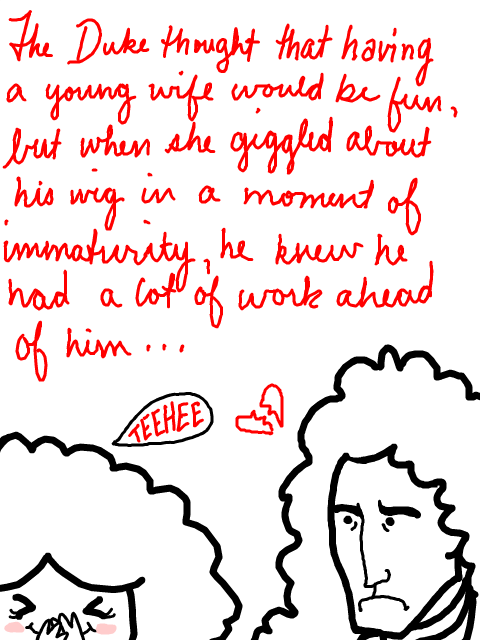 The Duke thought that having
a young wife would be fun,
but when she giggled about
his wig in a moment of
immaturity, he knew he
had a lot of work ahead
of him...
TEEHEE